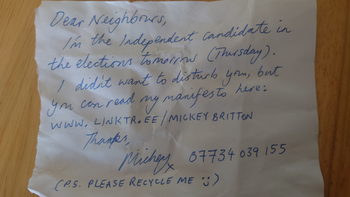 Dear Neighbours,
I'm the Independent candidate in
the elections tomorrow (Thursday).
I didn't want to disturb you, but
you can read my manifesto here:
WWW. LINKTR.EE/MICKEYBRITTON
Thanks,
Mickey x 07734 039 155
(P.S. PLEASE RECYCLE ME :))